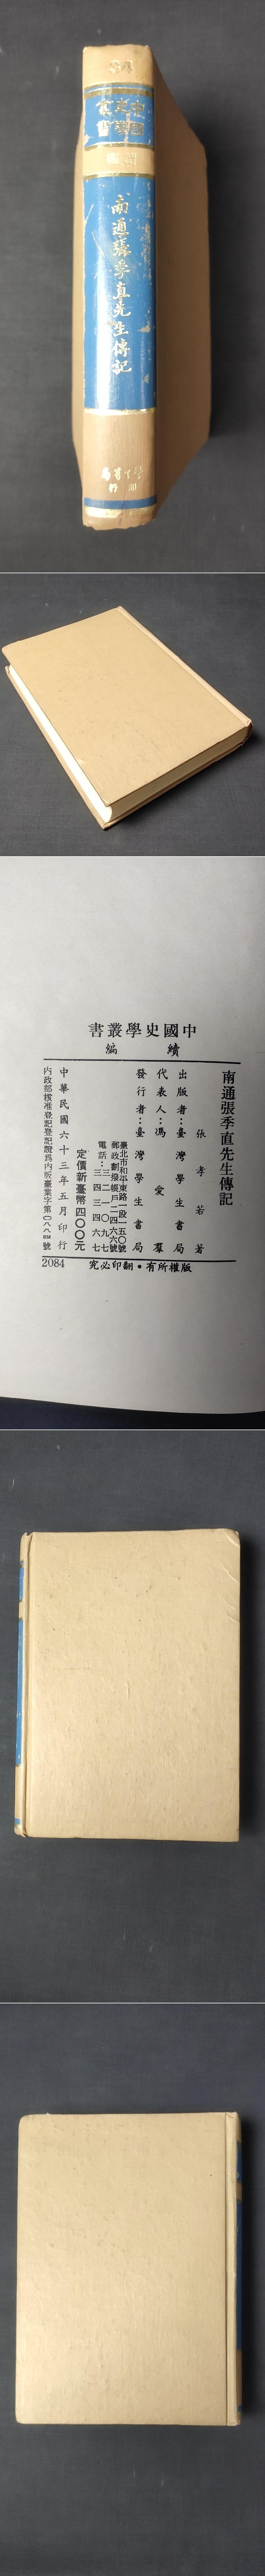 34
中國
史學
叢書
續編
南通張季直先生傳記
學生書局
印行
中國史學叢書
續編
南通張季直先生傳記
張孝若著
出版者：臺灣學生書局
代表人：馮愛羣
發行者：臺灣學生書局
臺北市和平東路一段一五〇號
郵政劃撥帳戶二四六六號
電話：三二一〇九七
三四三四六七
定價新臺幣四〇〇元
中華民國六十三年五月印行
內政部核准登記登記證爲內版臺業字第〇八八四號
2084
版權所有•翻印必究